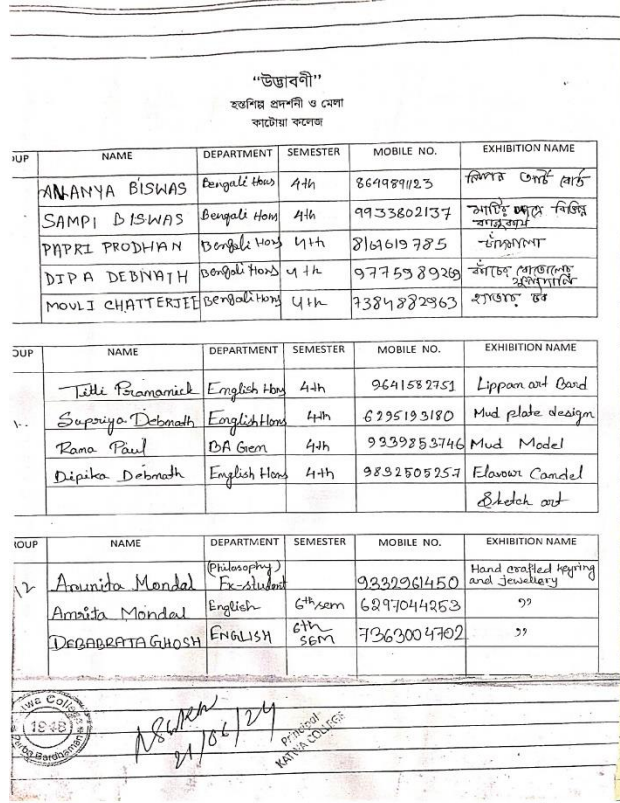 “উদ্ভাবণী”
হস্তশিল্প প্রদর্শনী ও মেলা
কাটোয়া কলেজ
OUP NAME DEPARTMENT SEMESTER MOBILE NO. EXHIBITION NAME
ANANYA BISWAS Bengali Hons 4th 8649891123 আর্ট বোর্ড
SAMPI BISWAS Bengali Hons 4th 9933802137 মাটির বিভিন্ন
PAPRI PRODHAN Bengali Hons 4th 8161619785
DIPA DEBNATH Bengali Hons 4th 9775989269 কাঁচের বোতলের
ফুলদানি
MOULI CHATTERJEE Bengali Hons 4th 7384882963
OUP NAME DEPARTMENT SEMESTER MOBILE NO. EXHIBITION NAME
Titli Pramanick English Hons 4th 9641582751 Lippan art Bard
Supriya Debnath English Hons 4th 6295193180 Mud plate design
Rama Paul BA Gen 4th 9339853746 Mud Model
Dipika Debnath English Hons 4th 9832505257 Flavour Candel
Sketch art
ROUP NAME DEPARTMENT SEMESTER MOBILE NO. EXHIBITION NAME
12 Arunita Mondal (Philosophy) Ex-student 9332961450 Hand crafted keyring and jewellery
Amrita Mondal English 6th sem 6297044253 ”
DEBABRATA GHOSH ENGLISH 6th SEM 7363004702 ”
wa College
1948
Purba Bardhaman
21/06/24
Principal
KATWA COLLEGE